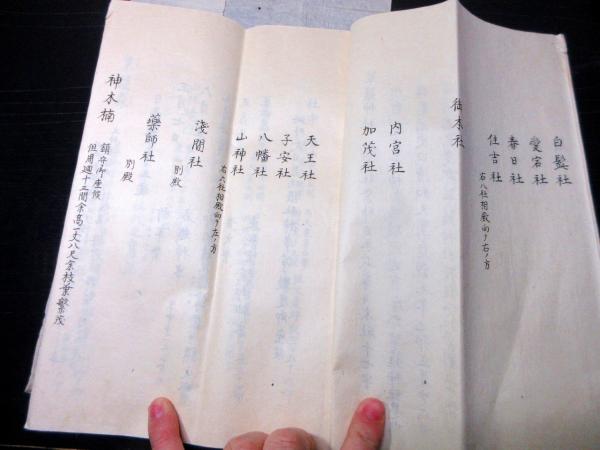 白髭社
愛宕社
春日社
住吉社
右八社相殿向テ右ノ方
御本社
内宮社
加茂社
天王社
子安社
八幡社
山神社
右八社相殿向テ左ノ方
浅間社
別殿
薬師社
別殿
神木楠
額弁御座候
但周週十三間余高一丈八尺余枝葉繁茂